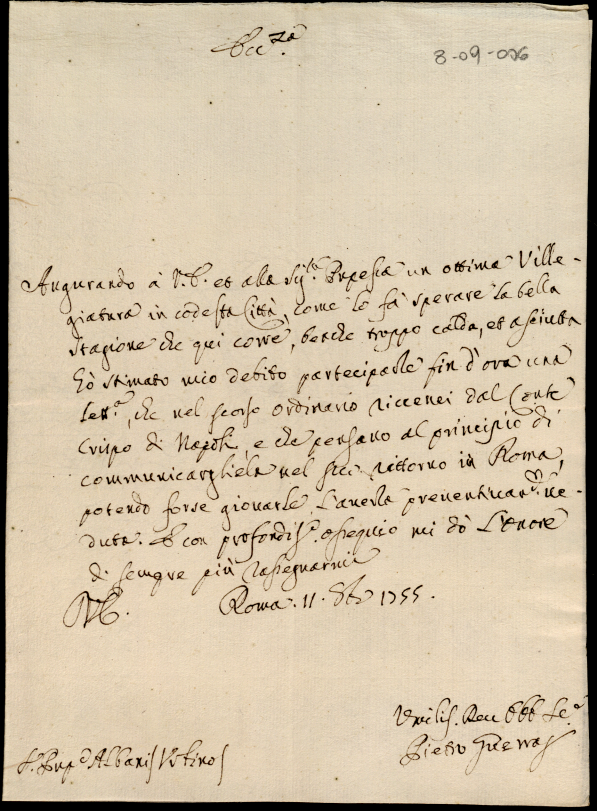 Ecc.za
8-09-006
Augurando à V.E. et alla Sig.ra Pnpessa un ottima Ville-
giatura in codesta Città, come lo fà sperare la bella
stagione che qui corre, benche troppo calda, et asciutta
hò stimato mio debito parteciparle fin d'ora una
lett.a, che nel scorso ordinario riccevei dal Conte
Crispo di Napoli, e che pensavo al principio di
communicargliela nel suo rittorno in Roma,
potendo forse giovarle l'averla preventivam.te ve-
duta. E con profondis.o ossequio mi dò l'onore
di sempre più rassegnarmi
V.E. Roma. 11. 1755.
Umilis. Dev Obb Se.e
Pietro Guerra
S. Pnpe Albani Urbino